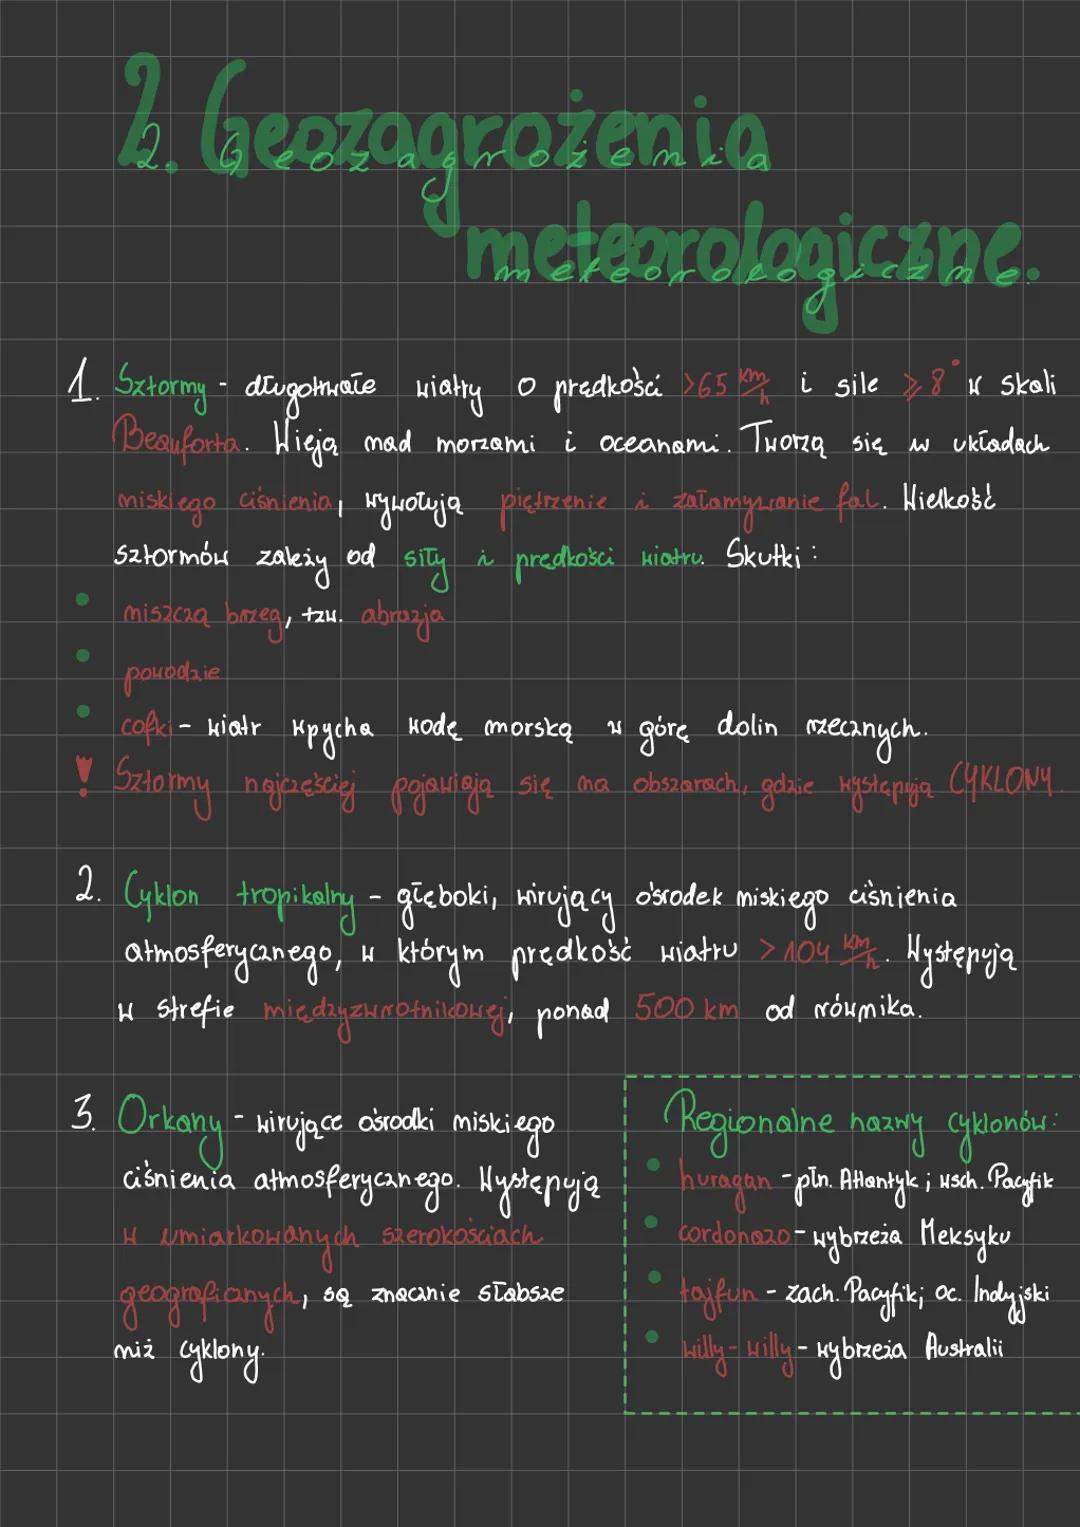 2. Geozagrożenia
meteorologiczne.
1. Sztormy - długotrwałe wiatry o prędkości >65 km/h i sile ≥8° w skali
Beauforta. Wieją nad morzami i oceanami. Tworzą się w układach
niskiego ciśnienia, wywołują piętrzenie i załamywanie fal. Wielkość
sztormów zależy od siły i prędkości wiatru. Skutki:
• niszczą brzeg, tzw. abrazja
• powodzie
• cofki - wiatr wpycha wodę morską w górę dolin rzecznych.
! Sztormy najczęściej pojawiają się na obszarach, gdzie występują CYKLONY.
2. Cyklon tropikalny - głęboki, wirujący ośrodek niskiego ciśnienia
atmosferycznego, w którym prędkość wiatru >104 km/h. Występują
w strefie międzyzwrotnikowej, ponad 500 km od równika.
3. Orkany - wirujące ośrodki niskiego
ciśnienia atmosferycznego. Występują
w umiarkowanych szerokościach
geograficznych, są znacznie słabsze
niż cyklony.
Regionalne nazwy cyklonów:
• huragan - płn. Atlantyk; wsch. Pacyfik
• cordonazo - wybrzeża Meksyku
• tajfun - zach. Pacyfik; oc. Indyjski
• willy-willy - wybrzeża Australii